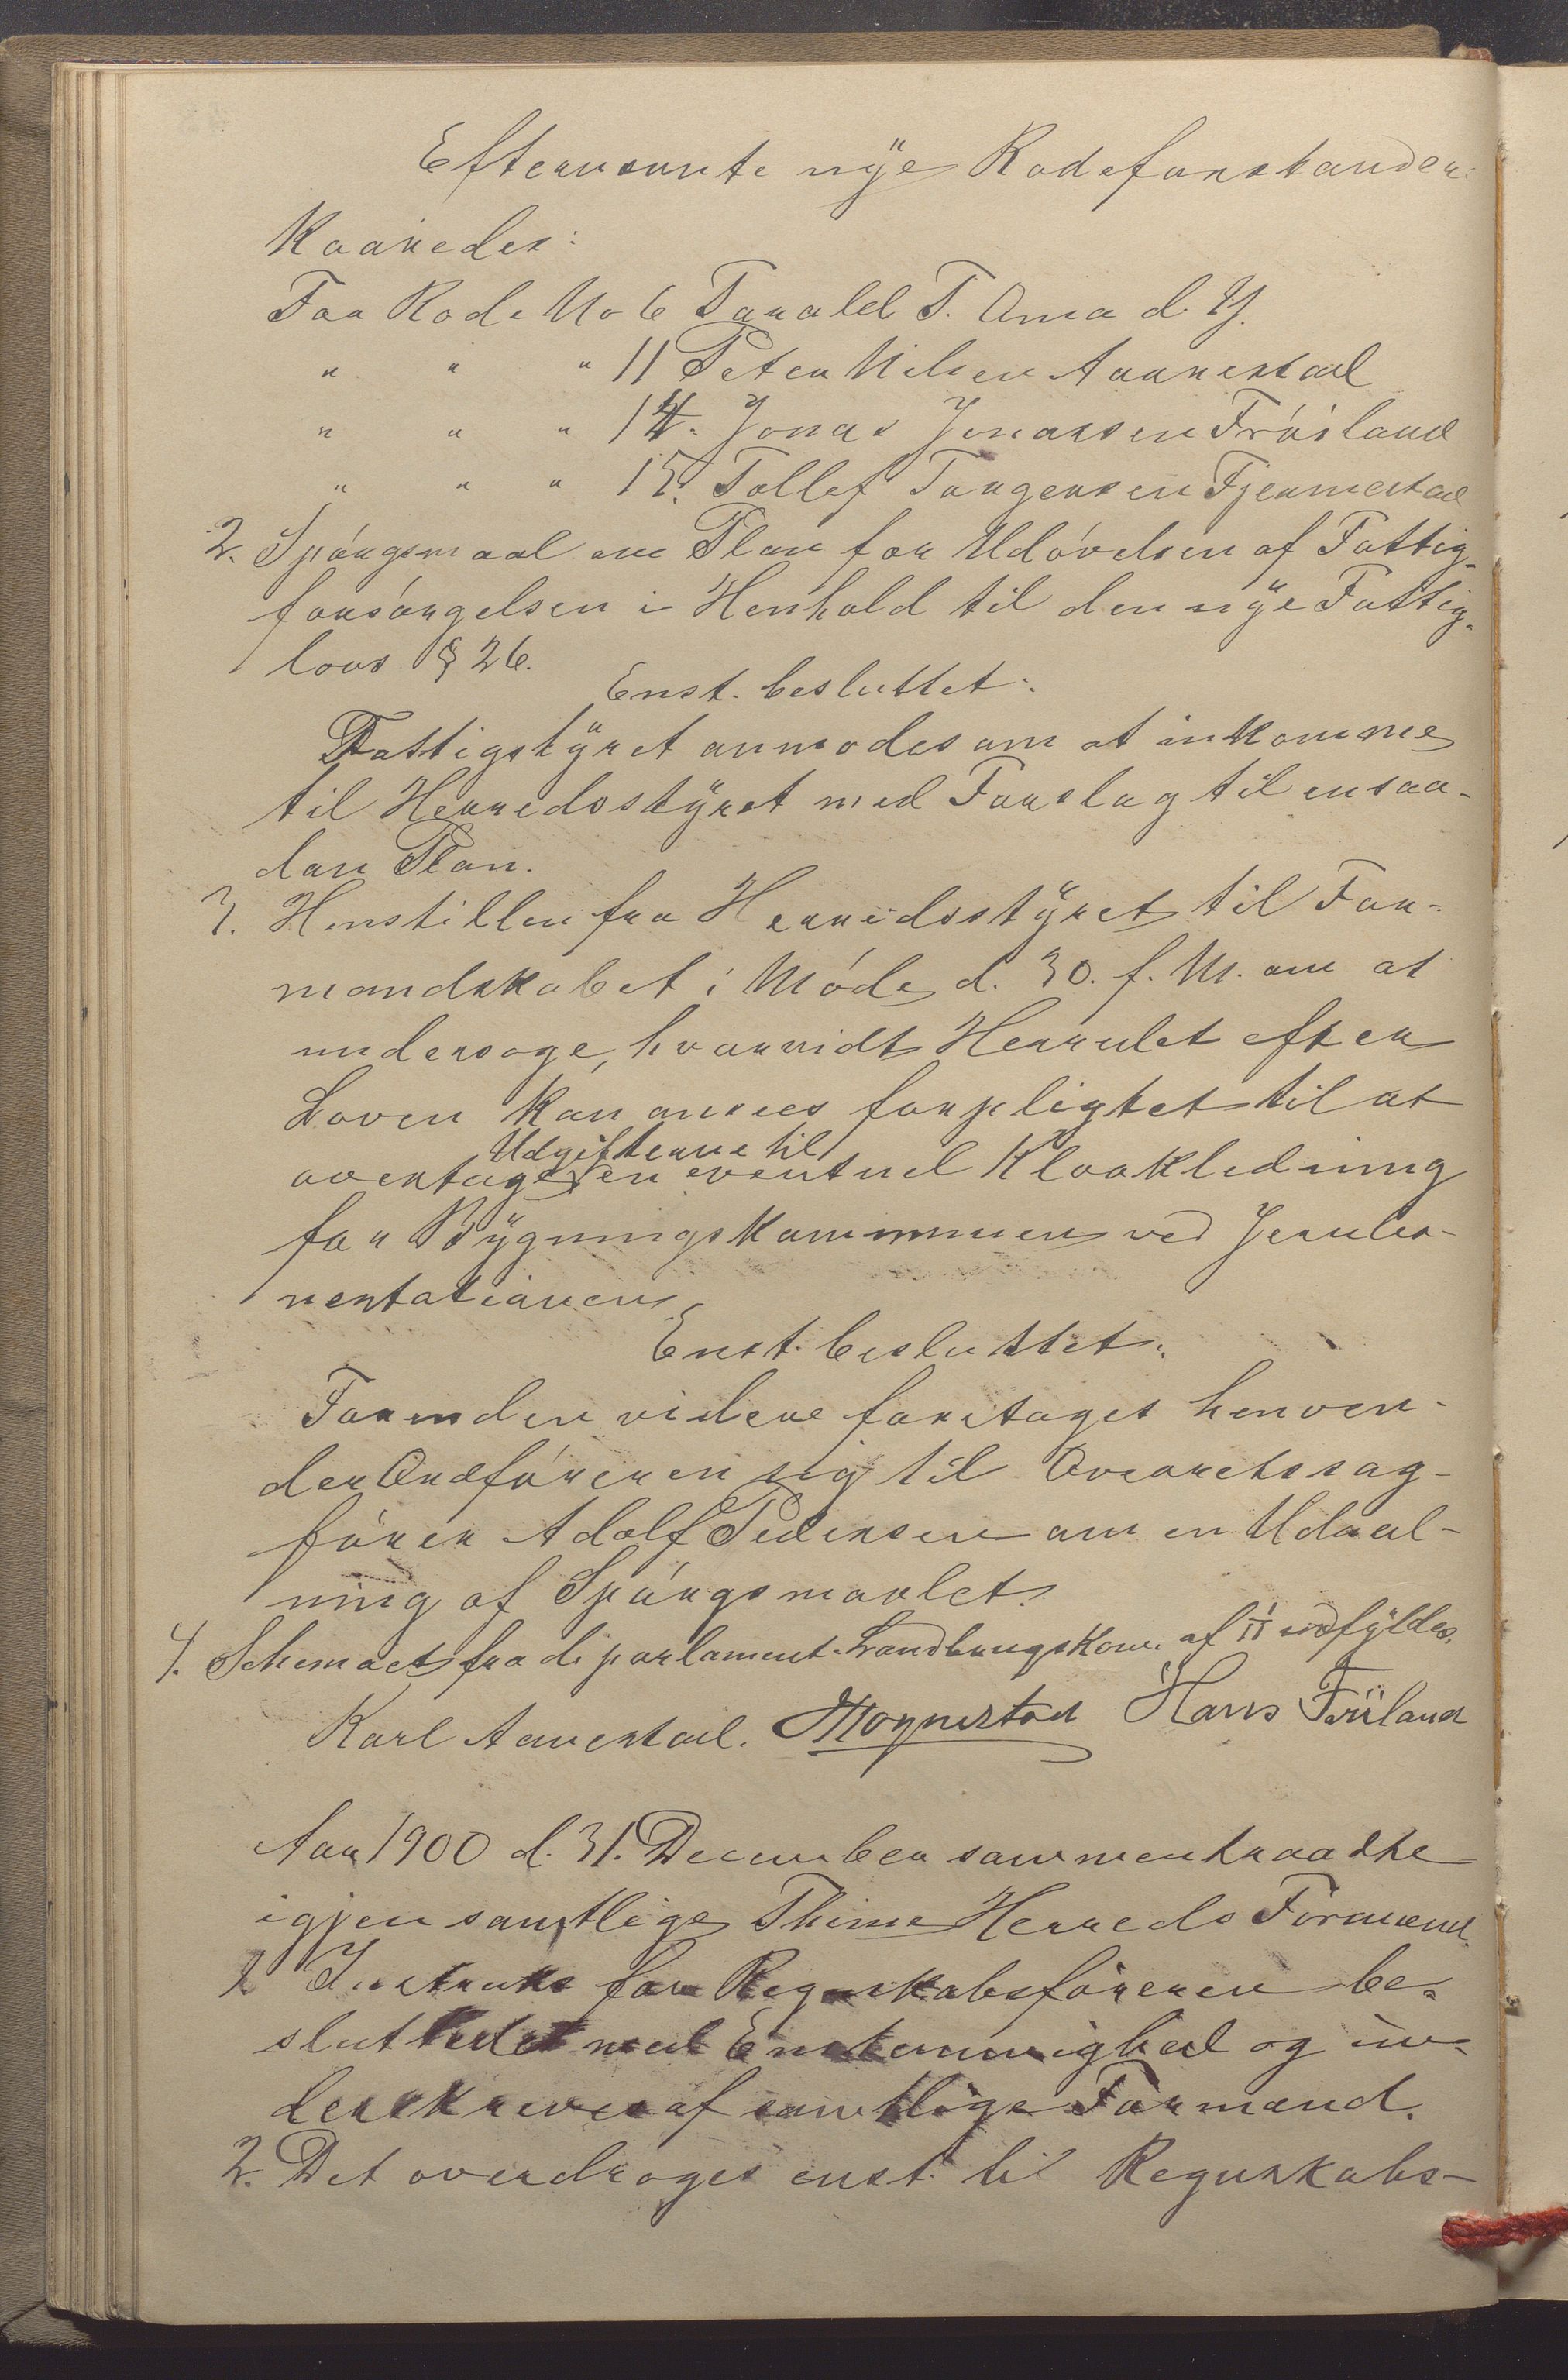 Efternevnte nye Rodeforstandere
Kaaredes:
For Rode No 6 Torald T. Oma d. Y.
" " " 11 Peter Nilsen Aarrestad
" " " 14. Jonas Jonassen Fröiland
" " " 15. Tollef Torgersen Fjermestad
2. Spörgsmaal om Plan for Udövelsen af Fattig-
forsörgelsen i Henhold til den nye Fattig-
lovs § 26.
Enst. besluttet:
Fattigstyret anmodes om at inkomme
til Herredsstyret med Forslag til en saa-
dan Plan.
3. Henstillen fra Herredsstyret til For-
mandskabet i Möde d. 30. f. M. om at
undersoge, hvorvidt Herredet efter
Loven kan ansees forpligtet til at
Udgifterne til
overtage en eventuel Kloakledning
for Bygningskommunen ved Jernba-
nestationen.
Enst. besluttet:
Forinden videre foretages henven-
der Ordföreren sig til Overretssag-
förer Adolf Pedersen om en Udtal-
ning af Spörgsmaalet.
4. Schemaet fra de parlament. Landbrugskom. af udfyldes.
Karl Aanestad. Mognestad Hans Fröiland
Aar 1900 d. 31. December sammentraadte
igjen samtlige Thime Herreds Formænd.
1 Instruks for Regnskabsföreren be-
sluttedes med Enstemmighed og un-
derskreves af samtlige Formænd.
2. Det overdroges enst. til Regnskabs-